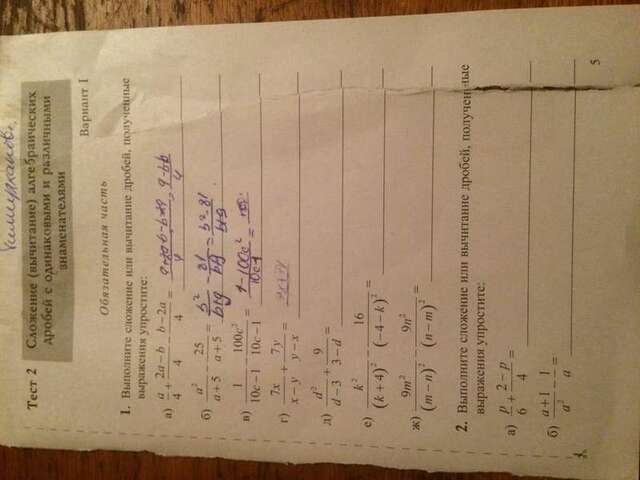 Тест 2
Сложение (вычитание) алгебраических
дробей с одинаковыми и различными
знаменателями
Вариант I
Обязательная часть
1. Выполните сложение или вычитание дробей, полученные
выражения упростите:
а) a/4 + 2a−b/4 − b−2a/4 =
б) a²/a+5 − 25/a+5 = b²/b+9 − 81/b+9 = b²−81/b+9
в) 1/10c−1 − 100c²/10c−1 = 1−100c²/10c−1 =
г) 7x/x−y + 7y/y−x =
д) d²/d−3 + 9/3−d =
е) k²/(k+4)² − 16/(−4−k)² =
ж) 9m²/(m−n)² − 9n²/(n−m)² =
2. Выполните сложение или вычитание дробей, полученные
выражения упростите:
а) p/6 + 2−p/4 =
б) a+1/a² − 1/a =
5